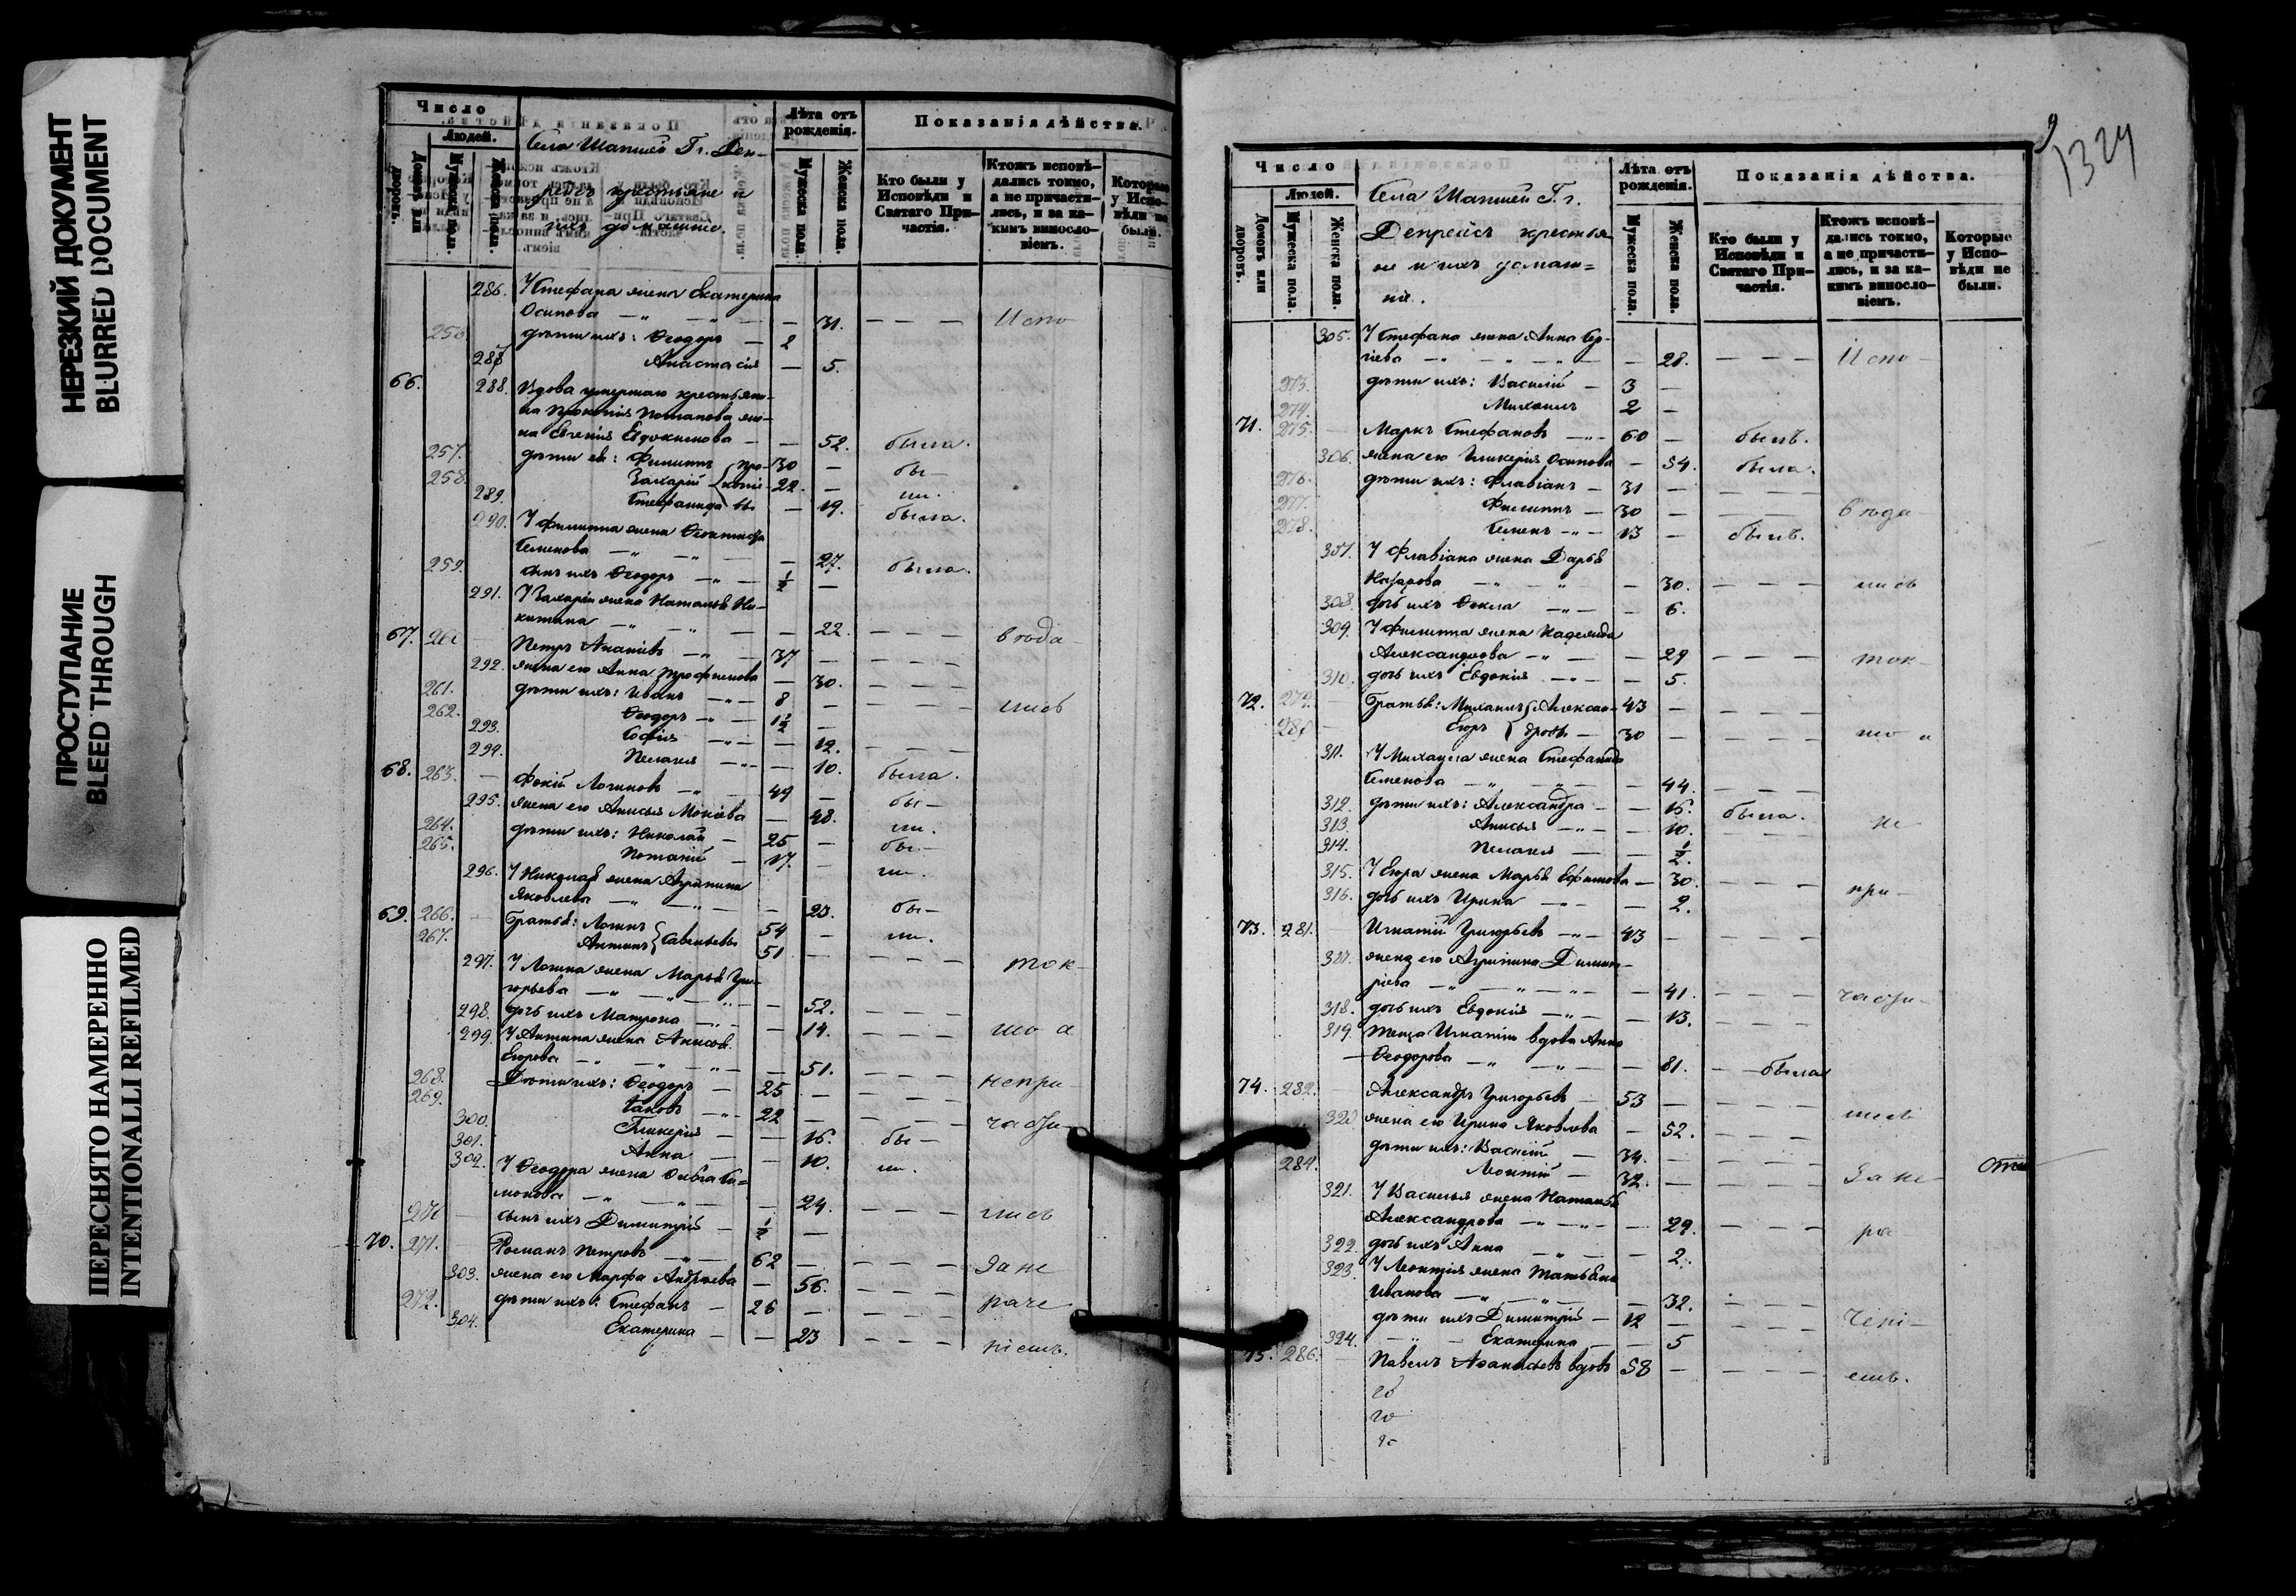 НЕРЕЗКИЙ ДОКУМЕНТ
BLURRED DOCUMENT
ПРОСТУПАНИЕ
BLEED THROUGH
ПЕРЕСНЯТО НАМЕРЕННО
INTENTIONALLI REFILMED
Число
Людей.
Домовъ или дворовъ.
Мужеска пола.
Женска пола.
Села Шапшей Гг. Деп-
рейсъ крестьяне и
ихъ домашніе.
Лѣта отъ рожденія.
Мужеска пола.
Женска пола.
Показанія дѣйства.
Кто были у Исповѣди и Святаго При-частія.
Ктожъ исповѣ-дались токмо, а не причасти-лись, и за ка-кимъ винословіемъ.
Которые у Испо-вѣди не были.
286. У Стефана жена Екатерина
Осипова — 31. — — — Испо
256. дѣти ихъ: Ѳеодоръ — 2
287 Анастасія — 5.
66. 288. Вдова умершаго крестьяни-
на Прокопія Потапова же-
на Евгенія Евдокимова — 52. была.
257. дѣти ея: Филиппъ Про- 30 — бы-
258. Захарій копіе- 22. — ли.
289. Стефанида вы — 19. была.
290. У Филиппа жена Ѳеоктиста
Семенова — 27. была.
259. сынъ ихъ Ѳеодоръ — 1/2 —
291. У Захарія жена Наталья Ни-
китина — 22. — — — вѣда-
67. 260 Петръ Ананіевъ — 37 — — — —
292. жена его Анна Трофимова — 30. — — —
261. дѣти ихъ: Иванъ — 8 — — — — лись
262. Ѳеодоръ — 1 1/2 —
293. Софія — 12. — — —
294. Пелагея — 10. была.
68. 263. Фокій Логиновъ — 49 — бы-
295. жена его Анисья Мокіева — 48. ли.
264. дѣти ихъ: Николай — 25 — бы-
265. Потапій — 17. — ли.
296. У Николая жена Агрипина
Яковлева — 23. бы-
69. 266. Братья: Логинъ 54 — ли.
267. Антипъ Савельевы 51 — — — — ток-
297. У Логина жена Марья Гри-
горьева — 52. — — —
298. дочь ихъ Матрона — 14. — — — мо а
299. У Антипа жена Анисья
Егорова — 51. — — —
268. Дѣти ихъ: Ѳеодоръ — 25 — — — — непри-
269. Іаковъ — 22 — — — — части-
300. Гликерія — 16. бы-
301. Анна — 10. ли.
302. У Ѳеодора жена Ольга Си-
монова — 24. — — — лись
270 сынъ ихъ Димитрій — 1/2 —
70. 271. Романъ Петровъ — 62 — — — — За не
303. жена его Марфа Андреева — 56. — — —
272. дѣти ихъ: Стефанъ — 26 — — — — раче
304. Екатерина — 23 — — — ніемъ.
1324
Число
Людей.
Домовъ или дворовъ.
Мужеска пола.
Женска пола.
Села Шапшей Гг.
Депрейсъ крестья-
не и ихъ домаш=
ніе.
Лѣта отъ рожденія.
Мужеска пола.
Женска пола.
Показанія дѣйства.
Кто были у Исповѣди и Святаго При-частія.
Ктожъ исповѣ-дались токмо, а не причасти-лись, и за ка-кимъ винословіемъ.
Которые у Испо-вѣди не были.
305. У Стефана жена Анна Сер-
гіева — 28. — — — Испо-
273. дѣти ихъ: Василій — 3 —
274. Михаилъ 2 —
71. 275. Маркъ Стефановъ — 60 — былъ.
306. жена его Гликерія Осипова — 54. была.
276. дѣти ихъ: Флавіанъ — 31 — — — —
277. Филиппъ — 30 — — — вѣда-
278. Семенъ — 13 — былъ.
307. У Флавіана жена Дарья
Назарова — 30. — — — лись
308. дочь ихъ Ѳекла — 6.
309. У Филиппа жена Надежда
Александрова — 29 — — — ток-
310. дочь ихъ Евдокія — 5.
72. 279. Братья: Михаилъ Алексан- 43 — — — —
280 Егоръ дровы — 30 — — — — мо а
311. У Михаила жена Стефанида
Семенова — 44. — — —
312. дѣти ихъ: Александра — 15. была.
313. Анисья — 10. — — не-
314. Пелагея — 1/2.
315. У Егора жена Марья Ефимова — 30. — — — при-
316. дочь ихъ Ирина — 2.
73. 281. Игнатій Григорьевъ — 43 — — — —
317. жена его Агрипина Димит-
ріева — 41. — — — части-
318. дочь ихъ Евдокія — 13. — — —
319. теща Игнатія вдова Анна
Ѳеодорова — 81. — была
74. 282. Александръ Григорьевъ — 53 — — — — лись
320 жена его Ирина Яковлева — 52. — — —
дѣти ихъ: Василій — 34. — — — —
284. Леонтій — 32. — — — — За не Отл
321. У Василья жена Наталья
Александрова — 29. — — — ра
322. дочь ихъ Анна — 2.
323. У Леонтія жена Татьяна
Иванова — 32. — — —
дѣти ихъ Димитрій — 12 — — — — чені-
324. Екатерина — 5
75. 286. Павелъ Аѳанасьевъ вдовъ 58 — — — — емъ.